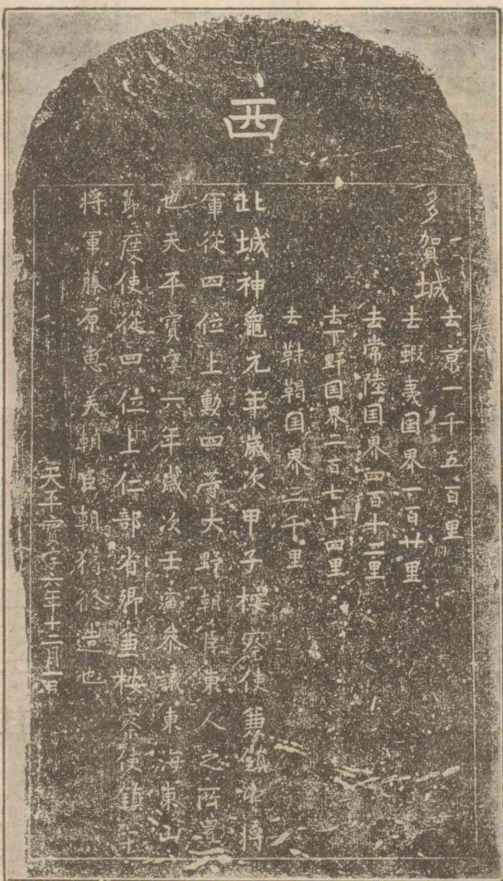 西
多賀城
去京一千五百里
去蝦夷国界一百廿里
去常陸国界四百十二里
去下野国界二百七十四里
去靺鞨国界三千里
此城神龜元年歲次甲子按察使兼鎮守將
軍從四位上勳四等大野朝臣東人之所置
也天平寶字六年歲次壬寅參議東海東山
節度使從四位上仁部省卿兼按察使鎮守
將軍藤原惠美朝臣朝獦修造也
天平寶字六年十二月一日